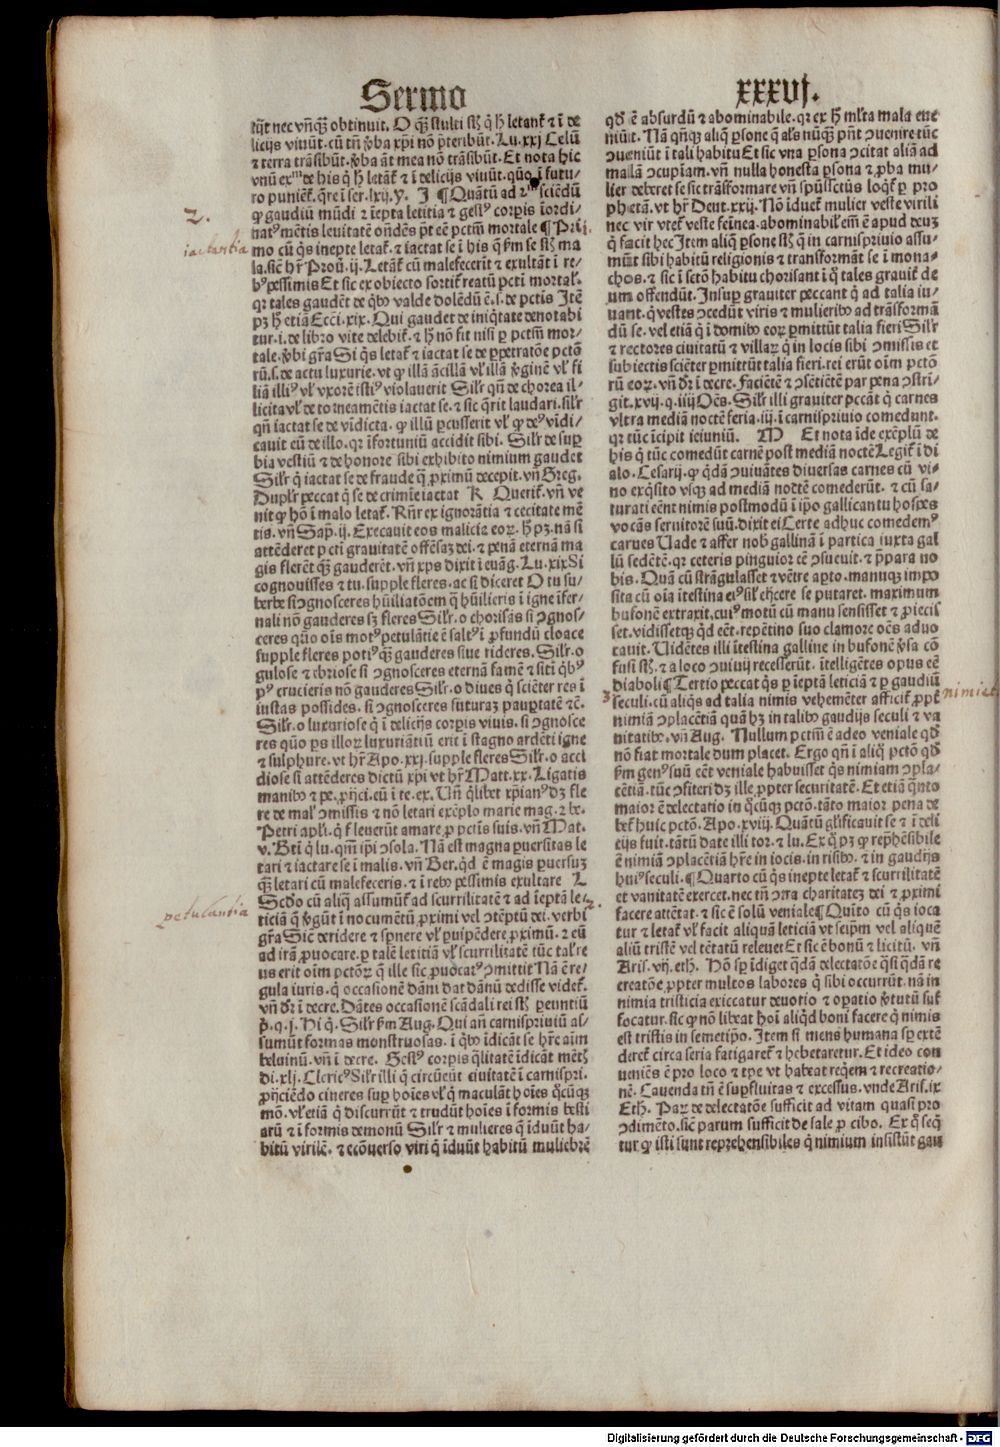 Sermo
xxxvj.
tijt nec vñq̃ʒ obtinuit. O q̃ʒ stulti sũt q̇ h̃ letant᷑ ⁊ ĩ de
licijs viuũt. cũ tñ v̓ba xp̃i nõ p̃teribũt. Lu. xxj Celũ
⁊ terra trãsibũt. v̓ba aũt mea nõ trãsibũt. Et nota hic
vnũ exᵐ de his q̇ h̃ letãt᷑ ⁊ ĩ delicijs viuũt. quõ ĩ futu/
ro punient᷑. q̃re ĩ ser. lxij. y. J ¶ Quãtũ ad 2ᵐ sciẽdũ
ꝙ gaudiũ mũdi ⁊ iẽpta letitia ⁊ gestꝰ corpis iordi/
natꝰ mẽtis leuitatẽ ondẽs pt̃ eẽ pctm̃ mortale ¶ Pri
mo cũ q̇s inepte letat᷑. ⁊ iactat se ĩ his q̃ fm̃ se sũt ma
la. sic̃ hr̃ Prou. ij. Letãt᷑ cũ malefecerĩt ⁊ exultãt ĩ re/
bꝰ pessimis Et sic ex obiecto sortit᷑ reatũ pcti mortal᷑.
qr tales gaudẽt de q̇bꝰ valde dolẽdũ ẽ. s. de pctis Itẽ
pʒ h̃ etiã Ecci. xix. Qui gaudet de iniq̃tate denotabi
tur. i. de libro vite delebit᷑. ⁊ h̃ nõ fit nisi ꝑ pctm̃ mor/
tale. v̓bi gr̃a Si q̇s letat᷑ ⁊ iactat se de ꝑpetratõe pctõ
rũ. s. de actu luxurie. vt ꝙ illã ãcillã vl᷑ illã v̓ginẽ vl᷑ fi
liã illiꝰ vl᷑ vxorẽ istiꝰ violauerit Sil᷑r qñ de chorea il/
licita vl᷑ de torneamẽtis iactat se. ⁊ sic q̃rit laudari. sil᷑r
qñ iactat se de vĩdicta. ꝙ illũ ꝑcusserit vl᷑ ꝙ deꝰ vĩdi/
cauit eũ de illo. qr ĩfortuniũ accidit sibi. Sil᷑r de suꝑ
bia vestiũ ⁊ de honore sibi exhibito nimium gaudet
Sil᷑r q̇ iactat se de fraude q̃ ꝓximũ decepit. vñ Greg.
Dupl᷑r peccat q̇ se de crimĩe iactat K Querit᷑. vñ ve
nit ꝙ hõ ĩ malo letat᷑. Rñr ex ignorãtia ⁊ cecitate mẽ
tis. vñ Sap̃. ij. Execauit eos malicia eoꝝ. h̃ pʒ. nã si
attẽderet pcti grauitatẽ offẽsaʒ dei. ⁊ penã eternã ma
gis fleret q̃ʒ gauderẽt. vñ xps dixit ĩ euãg. Lu. xix Si
cognouisses ⁊ tu. supple fleres. ac si diceret O tu su/
berbe si ꝯgnosceres hũiliatõem q̃ hũilieris ĩ igne ĩfer/
nali nõ gauderes sʒ fleres Sil᷑r. o chorisãs si ꝯgnos/
ceres quõ oĩs motꝰ petulãtie ẽ saltꝰ ĩ ꝓfundũ cloace
supple fleres potiꝰ q̃ʒ gauderes siue rideres. Sil᷑r. o
gulose ⁊ ebriose si ꝯgnosceres eternã famẽ ⁊ sitĩ q̇bꝰ
pꝰ crucieris nõ gauderes Sil᷑r. o diues q̇ sciẽter res ĩ
iustas possides. si ꝯgnosceres futuraʒ pauꝑtatẽ ⁊c̃.
Sil᷑r. o luxuriose q̇ ĩ delicijs corꝑis viuis. si ꝯgnosce
res quõ ps illoꝝ luxuriãtiũ erit ĩ stagno ardẽti igne
⁊ sulphure. vt hr̃ Apo. xxj. supple fleres Sil᷑r. o acci
diose si attẽderes dictũ xp̃i vt hr̃ Matt. xx. Ligatis
manibꝰ ⁊ pe. ꝓijci. eũ ĩ te. ex. Vñ q̇libet xp̃ianꝰ dʒ fle
re de mal᷑ ꝯmissis ⁊ nõ letari exẽplo marie mag. ⁊ be.
Petri apl᷑i. q̇ fleuerũt amare ꝓ pctis suis. vñ Mat.
v. Bti q̇ lu. qm̃ ip̃i ꝯsola. Nã est magna ꝑuersitas le
tari ⁊ iactare se ĩ malis. vñ Ber. qd̃ ẽ magis ꝑuersuʒ
q̃ʒ letari cũ malefeceris. ⁊ ĩ rebꝰ pessimis exultare L
Scdo cũ aliq̇s assumit᷑ ad scurrilitatẽ ⁊ ad ĩeptã le/
ticiã q̃ v̓gũt ĩ nocumẽtũ ꝓximi vel ꝯtẽptũ dei. verbi
gr̃a Sic̃ deridere ⁊ spnere vl᷑ ꝟpẽdere ꝓximũ. ⁊ eũ
ad irã ꝓuocare. ꝑ talẽ letitiã vl᷑ scurrilitatẽ tũc tal᷑ re
us erit oĩm pctõꝝ q̃ ille sic ꝓuocatꝰ ꝯmittit Nã ẽ re/
gula iuris. q̇ occasionẽ dãni dat dãnũ dedisse videt᷑.
vñ dr̃ ĩ decre. Dãtes occasionẽ scãdali rei sũt ꝑeuntiũ
p̃. q. j. Hi q̇. Sil᷑r fm̃ Aug. Qui añ carnispriuiũ as/
sumũt formas monstruosas. ĩ q̇bꝰ ĩdicãt se hr̃e aĩm
beluinũ. vñ ĩ decre. Gestꝰ corꝑis q̃litatẽ ĩdicãt mẽt᷑
di. xlj. Clericꝰ Sil᷑r illi q̇ circũeũt ciuitatẽ ĩ carnispri.
ꝓijciẽdo cineres suꝑ hoĩes vl᷑ q̇ maculãt hoĩes q̇cũqʒ
mõ. vl᷑ etiã q̇ discurrũt ⁊ trudũt hoĩes ĩ formis besti
arũ ⁊ ĩ formis demonũ Sil᷑r ⁊ mulieres q̃ ĩduũt ha/
bitũ virilẽ. ⁊ ecõuerso viri q̇ ĩduũt habitũ muliebrẽ
qd̃ ẽ absurdũ ⁊ abominabile. qr ex h̃ ml᷑ta mala eue
niũt. Nã qñqʒ aliq̃ ꝑsone q̃ al᷑s nũq̃ʒ pñt ꝯuenire tũc
ꝯueniũt ĩ tali habitu Et sic vna ꝑsona ꝯcitat aliã ad
malã ꝯcupiam. vñ nulla honesta ꝑsona ⁊ ꝓba mu/
lier deberet se sic trãsformare vñ spũssctũs loq̇t᷑ ꝑ pro
phetã. vt hr̃ Deut. xxij. Nõ ĩduet᷑ mulier veste virili
nec vir vtet᷑ veste feĩnea. abominabil᷑ em̃ ẽ apud deuʒ
q̇ facit hec Item aliq̃ ꝑsone sũt q̃ in carnispriuio assu/
mũt sibi habitũ religionis ⁊ transformãt se ĩ mona/
chos. ⁊ sic ĩ sctõ habitu chorisant ĩ q̇ tales grauit᷑ de
um offendũt. Insuꝑ grauiter peccant q̇ ad talia iu/
uant. q̇ vestes ꝯcedũt viris ⁊ mulieribꝰ ad trãsformã
dũ se. vel etiã q̇ ĩ domibꝰ eoꝝ ꝑmittũt talia fieri Sil᷑r
⁊ rectores ciuitatũ ⁊ villaꝝ q̇ in locis sibi ꝯmissis et
subiectis sciẽter ꝑmittũt talia fieri. rei erũt oĩm pctõ
rũ eoꝝ. vñ dr̃ ĩ decre. Faciẽtẽ ⁊ ꝯsẽtiẽtẽ par pena ꝯstrĩ/
git. xvij. q. iiij Oẽs. Sil᷑r illi grauiter pccãt q̇ carnes
vltra mediã noctẽ feria. iij. ĩ carnispriuio comedunt.
qr tũc ĩcipit ieiuniũ. M Et nota ĩde exẽplũ de
his q̇ tũc comedũt carnẽ post mediã noctẽ Legit᷑ ĩ di
alo. Cesarij. ꝙ q̇dã ꝯuiuãtes diuersas carnes cũ vi/
no exq̃sito vsqʒ ad mediã noctẽ comederũt. ⁊ cũ sa/
turati eẽnt nimis postmodũ ĩ ip̃o gallicantu hospes
vocãs seruitorẽ suũ. dixit ei Certe adhuc comedemꝰ
carnes Uade ⁊ affer nob᷑ gallinã ĩ partica iuxta gal
lũ sedẽtẽ. qr ceteris pinguior eẽ ꝯsueuit. ⁊ p̃para no
bis. Quã cũ strãgulasset ⁊ vẽtre aꝑto. manuqʒ impo
sita cũ oĩa ĩtestina eiꝰ sil᷑ eijcere se putaret. maximum
bufonẽ extraxit. cuiꝰ motũ cũ manu sensisset ⁊ ꝓiecis
set. vidissetqʒ qd̃ eẽt. repẽtino suo clamore oẽs aduo
cauit. Uidẽtes illi ĩtestina galline in bufonẽ v̓sa cõ
fusi sũt. ⁊ a loco ꝯuiuij recesserũt. ĩtelligẽtes opus eẽ
diaboli ¶ Tertio peccat q̇s ꝑ ĩeptã leticiã ⁊ ꝑ gaudiũ
seculi. cũ aliq̇s ad talia nimis vehemẽter afficit᷑ ꝓpt̃
nimiã ꝯplacẽtiã quã hʒ in talibꝰ gaudijs seculi ⁊ va
nitatibꝰ. vñ Aug. Nullum pctm̃ ẽ adeo veniale qd̃
nõ fiat mortale dum placet. Ergo qñ ĩ aliq̇ pctõ qd̃
fm̃ genꝰ suũ eẽt veniale habuisset q̇s nimiam ꝯpla/
cẽtiã. tũc ꝯfiteri dʒ ille ꝓpter securitatẽ. Et etiã q̃nto
maior ẽ delectatio in q̇cũqʒ pctõ. tãto maior pena de
bet᷑ huic pctõ. Apo. xviij. Quãtũ gl᷑ificauit se ⁊ ĩ deli
cijs fuit. tãtũ date illi tor. ⁊ lu. Ex q̇ pʒ ꝙ rep̃hẽsibile
ẽ nimiã ꝯplacẽtiã hr̃e in iocis. in risibꝰ. ⁊ in gaudijs
huiꝰ seculi. ¶ Quarto cũ q̇s inepte letat᷑ ⁊ scurrilitatẽ
et vanitatẽ exercet. nec tñ ꝯtra charitateʒ dei ⁊ ꝓximi
facere attẽtat. ⁊ sic ẽ solũ veniale ¶ Quĩto cũ q̇s ioca
tur ⁊ letat᷑ vl᷑ facit aliquã leticiã vt seip̃m vel aliquẽ
aliũ tristẽ vel tẽtatũ releuet Et sic ẽ bonũ ⁊ licitũ. vñ
Aris. vij. eth. Hõ sꝑ ĩdiget q̃dã delectatõe q̃si q̃dã re
creatõe. ꝓpter multos labores q̇ sibi occurrũt. nã in
nimia tristicia exiccatur deuotio ⁊ oꝑatio v̓tutũ suf
focatur. sic ꝙ nõ libeat hoĩ aliq̇d boni facere q̇ nimis
est tristis in semetip̃o. Item si mens humana sꝑ extẽ
deret᷑ circa seria fatigaret᷑ ⁊ hebetaretur. Et ideo con
ueniẽs ẽ pro loco ⁊ tp̃e vt habeat req̇em ⁊ recreatio/
nẽ. Cauenda tñ ẽ suꝑfluitas ⁊ excessus. vnde Aris. ix
Eth. Paꝝ de delectatõe sufficit ad vitam quasi pro
ꝯdimẽto. sic̃ parum sufficit de sale ꝓ cibo. Ex q̇ seq̇
tur ꝙ isti sunt reprehensibiles q̇ nimium insistũt gau
2.
iactantia
petulantia
3
Digitalisierung gefördert durch die Deutsche Forschungsgemeinschaft - DFG